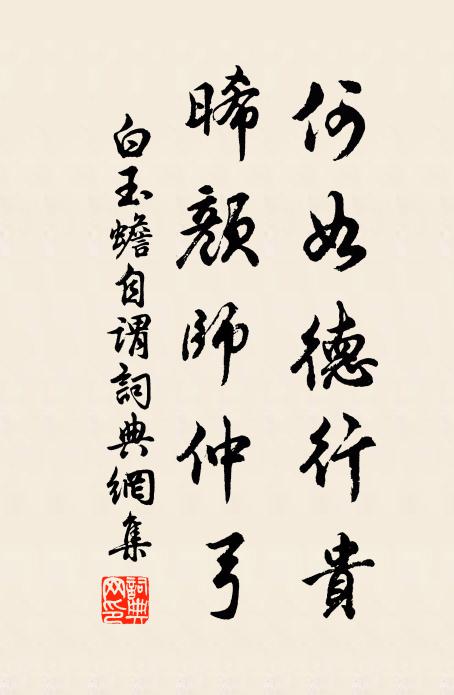 何如德行貴
晞顏師仲弓
白玉蟾自謂詞典網集
詞典網印